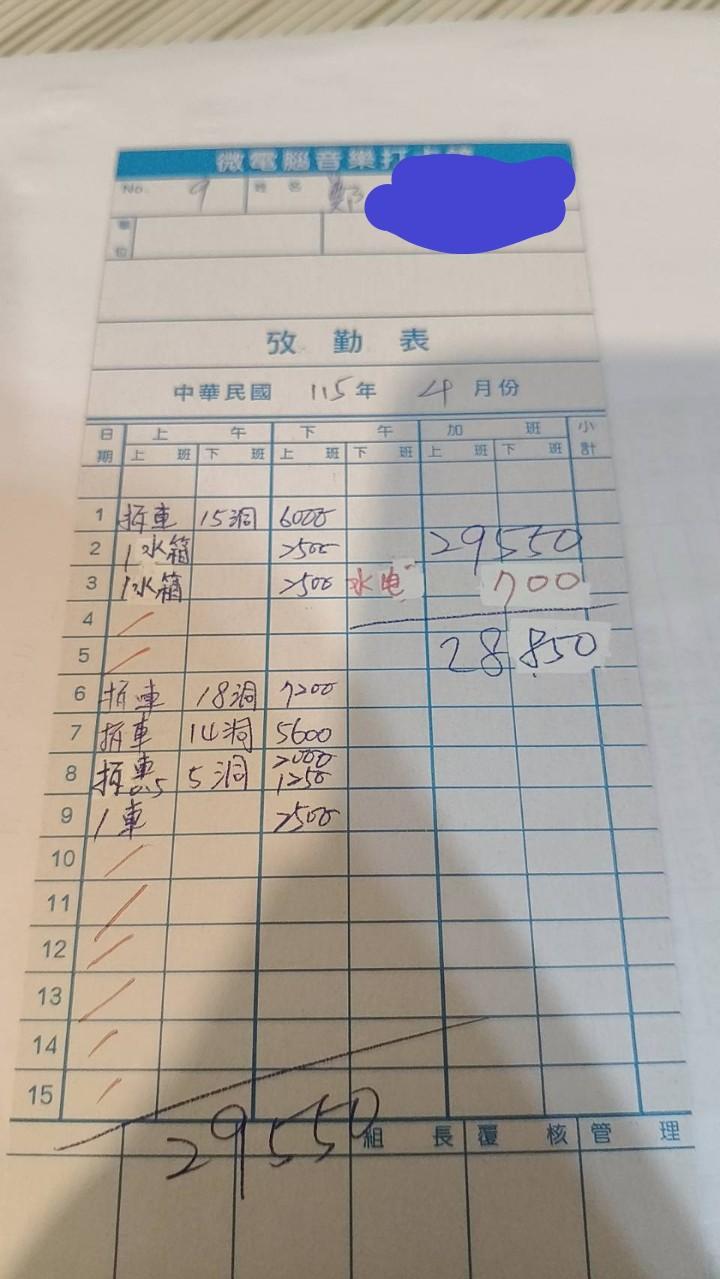 微電腦音樂打卡鐘
No. 9 姓名 鄭
單位
攷勤表
中華民國 115年 4月份
日期 上午 下午 加班 小計
上班 下班 上班 下班 上班 下班
1 拆車 15洞 6000
2 1水箱 2500 29550
3 1水箱 2500 水电 700
4 /
5 / 28850
6 拆車 18洞 7200
7 拆車 14洞 5600
8 拆車 5洞 2000
0.5 1250
9 1車 2500
10 /
11 /
12 /
13 /
14 /
15 /
29550
組長 覆核 管理